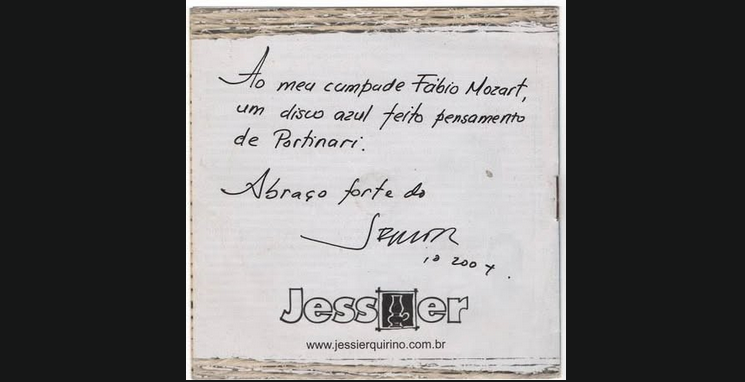 Ao meu cumpade Fábio Mozart,
um disco azul feito pensamento
de Portinari.
Abraço forte do
2007.
Jessier
www.jessierquirino.com.br